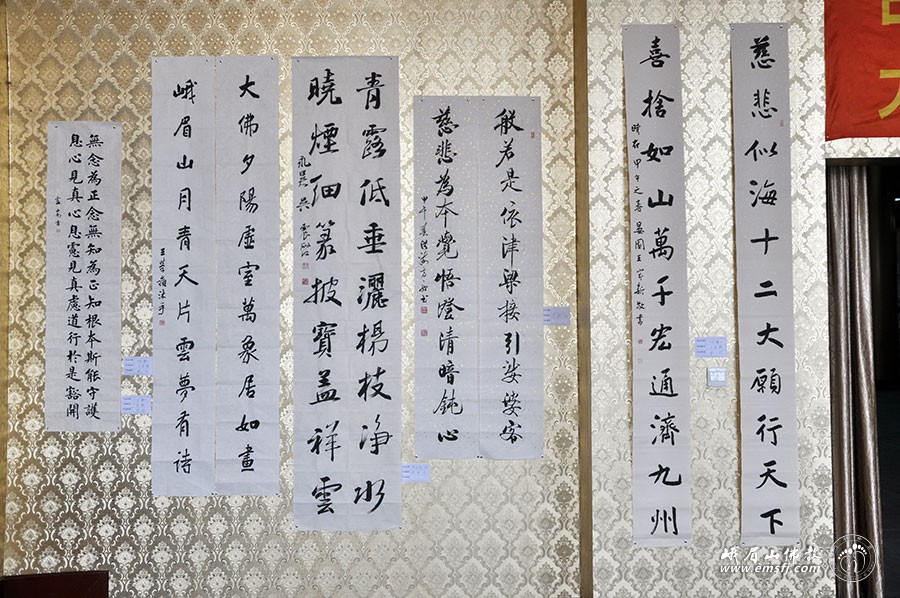 慈悲似海十二大願行天下
喜捨如山萬千宏通濟九州
般若是依津梁接引娑婆客
慈悲為本覺悟澄清暗鈍心
青露低垂灑楊枝净水
曉煙細篆披寶蓋祥雲
大佛夕陽虛室萬象居如畫
峨眉山月青天片雲夢有詩
無念為正念無知為正知根本斯能守護
息心見真心息慮見真慮道行於是豁開
峨眉山佛教
www.emsfj.com